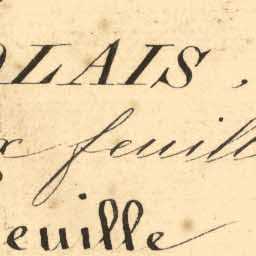 OLAIS,
x feuill
euille